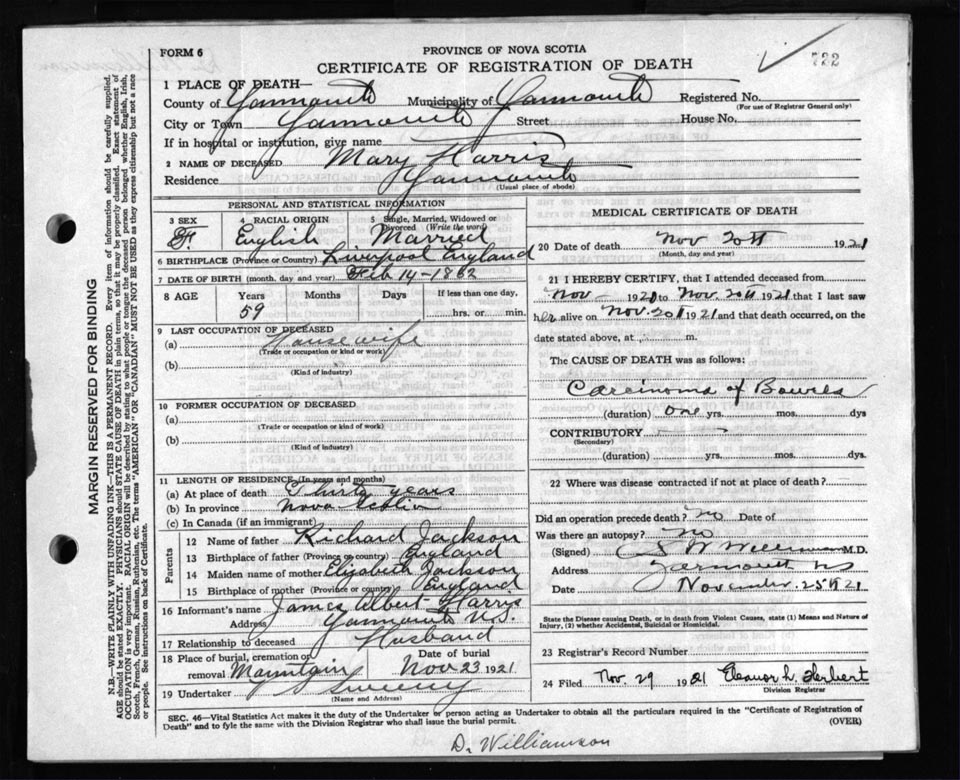 FORM 6
PROVINCE OF NOVA SCOTIA
CERTIFICATE OF REGISTRATION OF DEATH
722
1 PLACE OF DEATH—
County of Yarmouth Municipality of Yarmouth Registered No.
(For use of Registrar General only)
City or Town Yarmouth Street House No.
If in hospital or institution, give name
2 NAME OF DECEASED Mary Harris
Residence Yarmouth
(Usual place of abode)
PERSONAL AND STATISTICAL INFORMATION
3 SEX 4 RACIAL ORIGIN 5 Single, Married, Widowed or Divorced (Write the word)
F. English Married
6 BIRTHPLACE (Province or Country) Liverpool England
7 DATE OF BIRTH (month, day and year) Feb 14-1862
8 AGE Years Months Days If less than one day,
59 hrs. or min.
9 LAST OCCUPATION OF DECEASED
(a) Housewife
(Trade or occupation or kind or work)
(b)
(Kind of industry)
10 FORMER OCCUPATION OF DECEASED
(a)
(Trade or occupation or kind or work)
(b)
(Kind of industry)
11 LENGTH OF RESIDENCE (In years and months)
(a) At place of death Thirty years
(b) In province Nova Scotia
(c) In Canada (if an immigrant)
Parents
12 Name of father Richard Jackson
13 Birthplace of father (Province or country) England
14 Maiden name of mother Elizabeth Jackson
15 Birthplace of mother (Province or country) England
16 Informant's name James Albert Harris
Address Yarmouth N.S.
17 Relationship to deceased Husband
18 Place of burial, cremation or removal Mountain Date of burial Nov 23 1921
19 Undertaker Sweeny
(Name and Address)
MEDICAL CERTIFICATE OF DEATH
20 Date of death Nov 20th 1921
(Month, day and year)
21 I HEREBY CERTIFY, that I attended deceased from
Nov 1920 to Nov. 20th 1921 that I last saw
her alive on Nov. 20th 1921 and that death occurred, on the
date stated above, at m.
The CAUSE OF DEATH was as follows:
Carcinoma of Bowels
(duration) one yrs. mos. dys
CONTRIBUTORY
(Secondary)
(duration) yrs. mos. dys.
22 Where was disease contracted if not at place of death?
Did an operation precede death? no Date of
Was there an autopsy? no
(Signed) M.D.
Address Yarmouth NS
Date November. 25th 21
State the Disease causing Death, or in death from Violent Causes, state (1) Means and Nature of Injury, (2) whether Accidental, Suicidal or Homicidal.
23 Registrar's Record Number
24 Filed Nov. 29 1921 Eleanor L. Herbert
Division Registrar
SEC. 46—Vital Statistics Act makes it the duty of the Undertaker or person acting as Undertaker to obtain all the particulars required in the "Certificate of Registration of
Death" and to fyle the same with the Division Registrar who shall issue the burial permit.
(OVER)
D. Williamson
MARGIN RESERVED FOR BINDING
N.B.—WRITE PLAINLY WITH UNFADING INK—THIS IS A PERMANENT RECORD. Every item of information should be carefully supplied.
AGE should be stated EXACTLY. PHYSICIANS should STATE CAUSE OF DEATH in plain terms, so that it may be properly classified. Exact statement of
OCCUPATION is very important. RACIAL ORIGIN will be described by stating to what people or tongue the deceased person belonged, whether English, Irish,
Scotch, French, German, Russian, Ruthenian, etc. The terms "AMERICAN" OR "CANADIAN" MUST NOT BE USED as they express citizenship but not a race
or people. See instructions on back of Certificate.